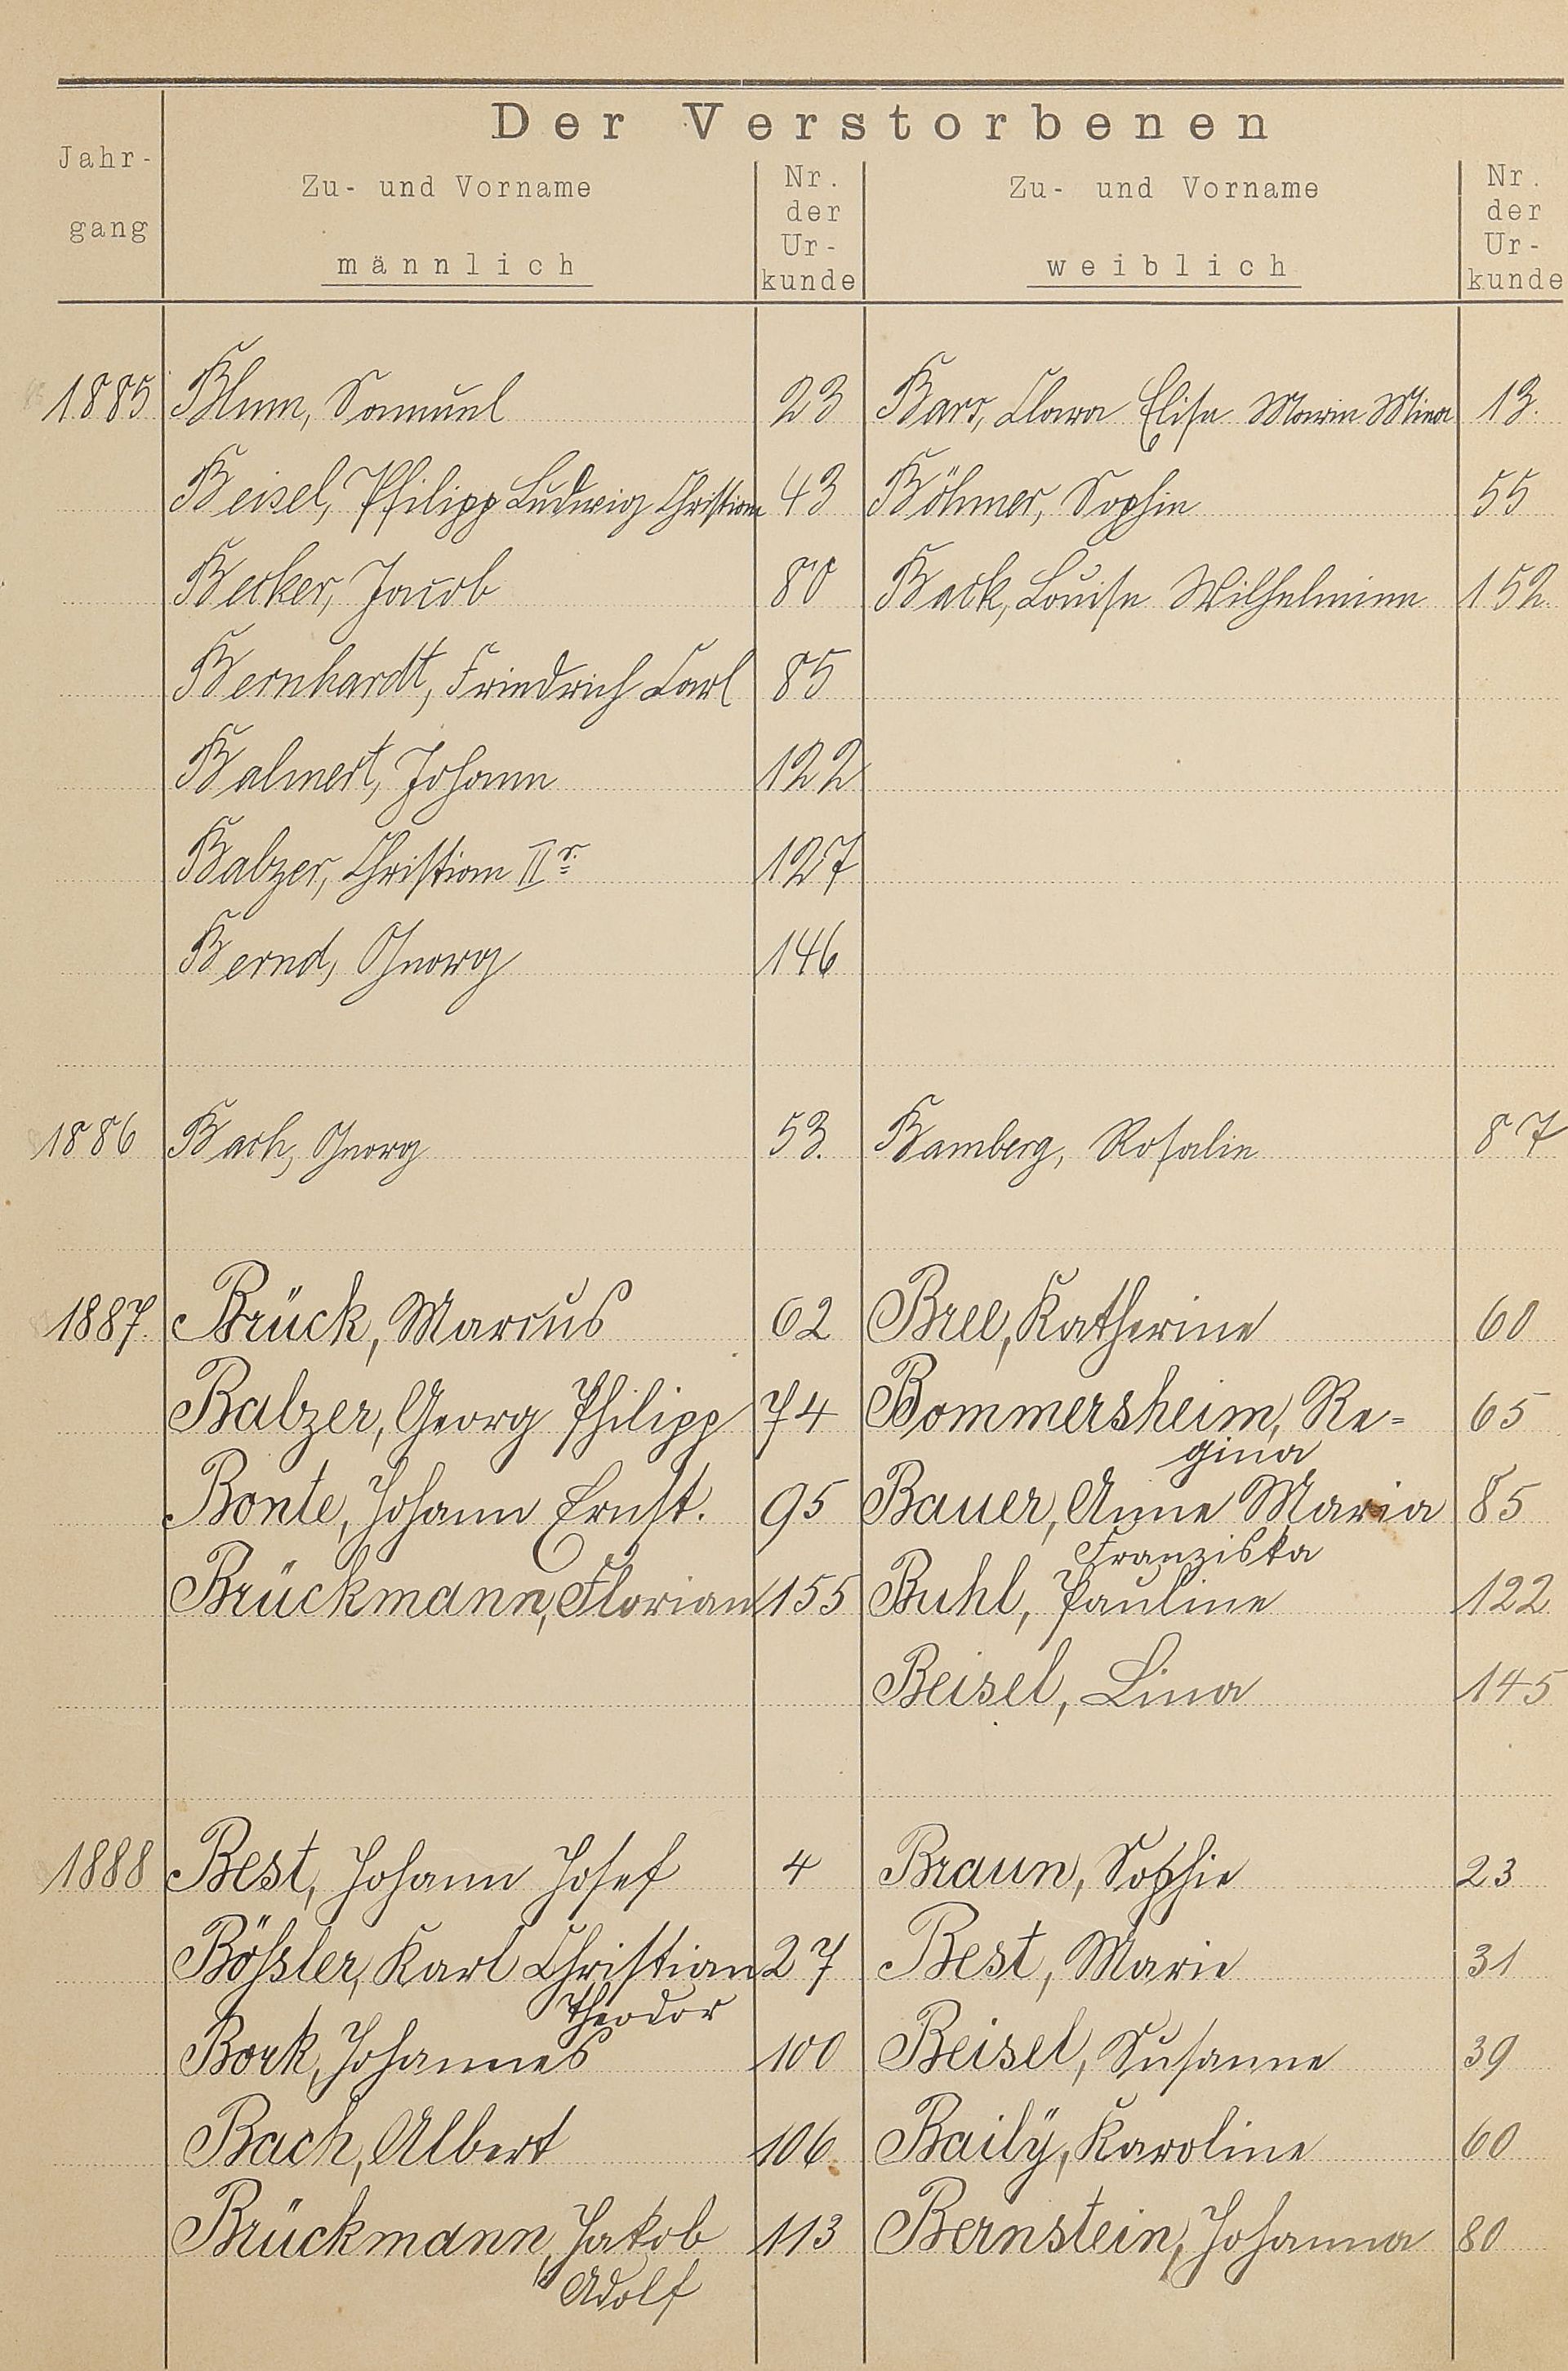 Der Verstorbenen
Jahr-
gang
Zu- und Vorname
männlich
Nr.
der
Ur-
kunde
Zu- und Vorname
weiblich
Nr.
der
Ur-
kunde
1885 Blum, Samuel 23 Bars, Clara Elise Marie Mina 13.
Beisel, Philipp Ludwig Christian 43 Böhmer, Sophie 55
Becker, Jacob 80 Back, Louise Wilhelmine 152
Bernhardt, Friedrich Carl 85
Balmert, Johann 122
Balzer, Christian IIr. 127
Bernd, Georg 146
1886 Bach, Georg 53. Bamberg, Rosalie 87
1887. Brück, Marcus 62 Brel, Katherine 60
Balzer, Georg Philipp 74 Bommersheim, Re= 65
gina
Bonte, Johann Ernst. 95 Bauer, Anne Maria 85
Franziska
Brückmann, Florian 155 Buhl, Pauline 122
Beisel, Lina 145
1888 Best, Johann Josef 4 Braun, Sophie 23
Bößler, Karl Christian 27 Best, Marie 31
Theodor
Bork, Johannes 100 Beisel, Susanne 39
Bach, Albert 106. Baily, Karoline 60
Brückmann, Jakob 113 Bernstein, Johanna 80
Adolf